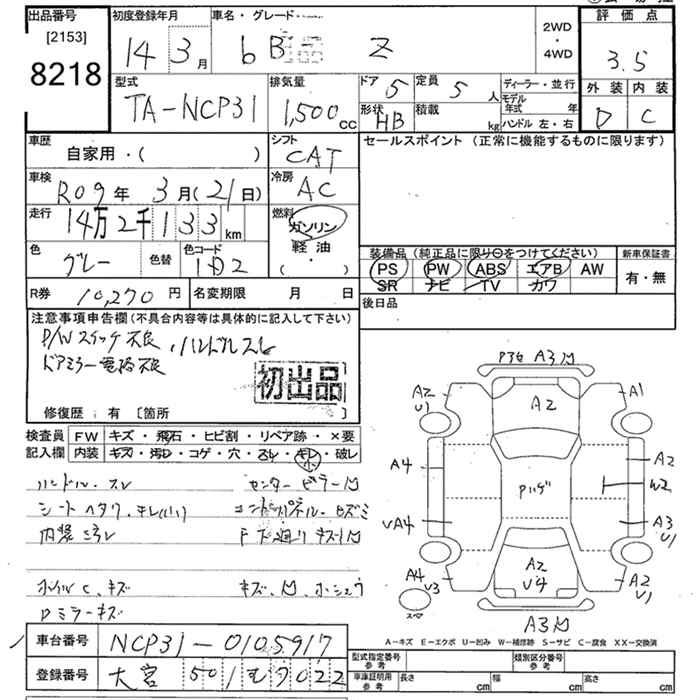 出品番号 初度登録年月 車名・グレード 評価点
[2153] 14年3月 bB Z 2WD・4WD 3.5
8218
型式 排気量 ドア 5 定員 5人 ディーラー・並行 外装 内装
TA-NCP31 1,500cc 形状 HB 積載 kg モデル年式 年 D C
ハンドル 左・右
車歴 シフト セールスポイント (正常に機能するものに限ります)
自家用・( ) CAT
車検 冷房
R09年3月(21日) AC
走行 燃料
14万2千133km ガソリン
軽油
色 色替 色コード ・( )
グレー 1D2
装備品 (純正品に限り○をつけてください) 新車保証書
PS PW ABS エアB AW 有・無
SR ナビ TV カワ
R券 10,270円 名変期限 月 日 後日品
注意事項申告欄 (不具合内容等は具体的に記入して下さい)
P/Wスイッチ不良、ハンドルスレ
ドアミラー電格不良
初出品
修復歴: 有 [箇所 ]
検査員 FW キズ・飛石・ヒビ割・リペア跡・×要
記入欄 内装 キズ・汚レ・コゲ・穴・スレ・キレ・破レ
小
ハンドル・スレ センターピラー凹
シートヘタリ、キレ(小)
内装ヨゴレ
ホイルC、キズ
Dミラーキズ
A3凹
A2 U1 A2 A1
A4 Pハゲ A2
W2
VA4 A3 U1
A4 V3 A2 V4 A2 U1
スペ
A3凹
A-キズ E-エクボ U-凹み W-補修跡 S-サビ C-腐食 XX-交換済
車台番号 NCP31-0105917
登録番号 大宮 501 む 7022
型式指定番号 参考 類別区分番号 参考
車庫証明用 参考 長さ cm 幅 cm 高さ cm